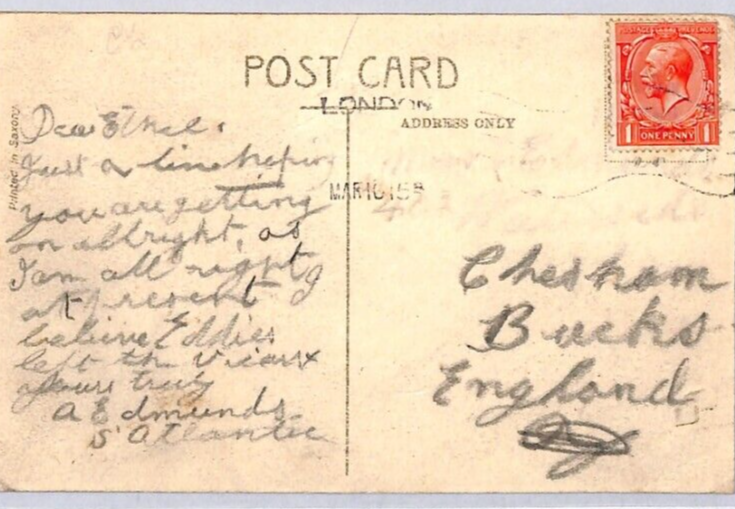 POST CARD
LONDON
ADDRESS ONLY
MAR 10 15
POSTAGE REVENUE
1 ONE PENNY 1
Printed in Saxony
Dear Ethel.
Just a line hoping
you are getting
on allright, as
I am all right
at present I
believe Eddies
left the Vicars
yours truly
A Edmunds
S Atlantic
Chesham
Bucks
England